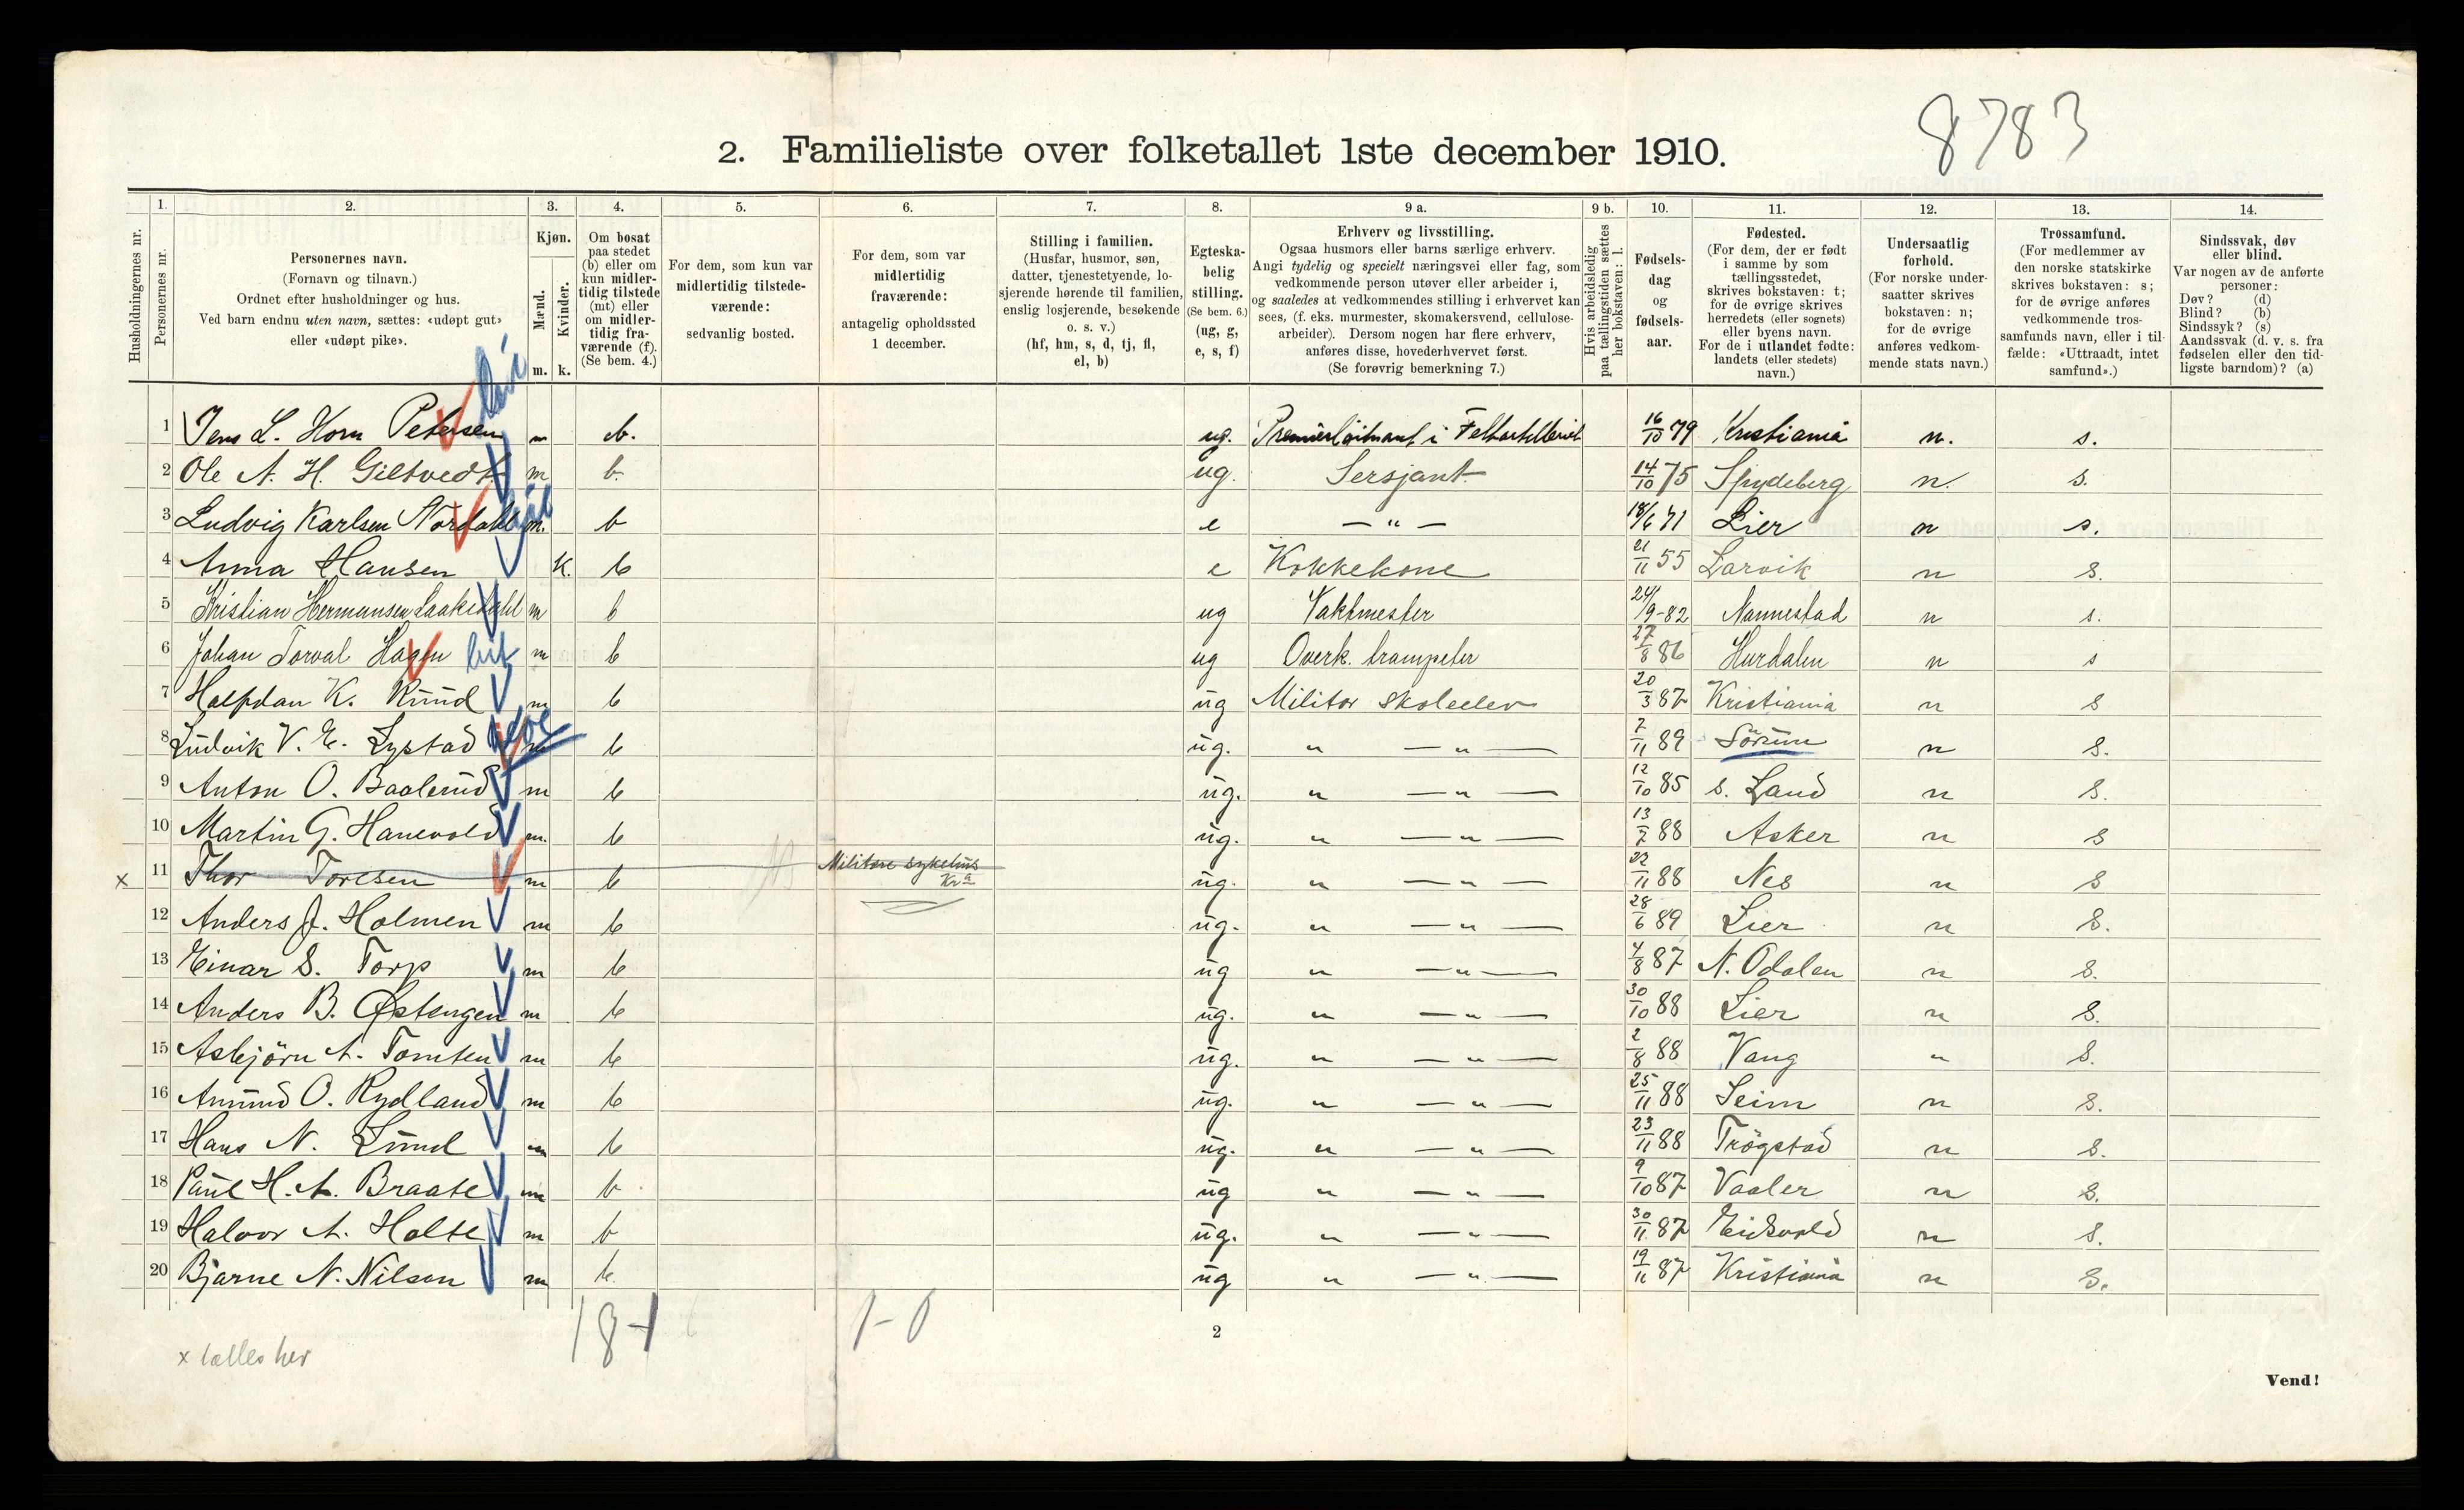 8783
2. Familieliste over folketallet 1ste december 1910.
1. 2. 3. 4. 5. 6. 7. 8. 9 a. 9 b. 10. 11. 12. 13. 14.
Husholdningernes nr.
Personernes nr.
Personernes navn.
(Fornavn og tilnavn.)
Ordnet efter husholdninger og hus.
Ved barn endnu uten navn, sættes: «udøpt gut»
eller «udøpt pike».
Kjøn.
Mænd.
Kvinder.
m. k.
Om bosat
paa stedet
(b) eller om
kun midler-
tidig tilstede
(mt) eller
om midler-
tidig fra-
værende (f).
(Se bem. 4.)
For dem, som kun var
midlertidig tilstede-
værende:
sedvanlig bosted.
For dem, som var
midlertidig
fraværende:
antagelig opholdssted
1 december.
Stilling i familien.
(Husfar, husmor, søn,
datter, tjenestetyende, lo-
sjerende hørende til familien,
enslig losjerende, besøkende
o. s. v.)
(hf, hm, s, d, tj, fl,
el, b)
Egteska-
belig
stilling.
(Se bem. 6.)
(ug, g,
e, s, f)
Erhverv og livsstilling.
Ogsaa husmors eller barns særlige erhverv.
Angi tydelig og specielt næringsvei eller fag, som
vedkommende person utøver eller arbeider i,
og saaledes at vedkommendes stilling i erhvervet kan
sees, (f. eks. murmester, skomakersvend, cellulose-
arbeider). Dersom nogen har flere erhverv,
anføres disse, hovederhvervet først.
(Se forøvrig bemerkning 7.)
Hvis arbeidsledig
paa tællingstiden sættes
her bokstaven: l.
Fødsels-
dag
og
fødsels-
aar.
Fødested.
(For dem, der er født
i samme by som
tællingsstedet,
skrives bokstaven: t;
for de øvrige skrives
herredets (eller sognets)
eller byens navn.
For de i utlandet fødte:
landets (eller stedets)
navn.)
Undersaatlig
forhold.
(For norske under-
saatter skrives
bokstaven: n;
for de øvrige
anføres vedkom-
mende stats navn.)
Trossamfund.
(For medlemmer av
den norske statskirke
skrives bokstaven: s;
for de øvrige anføres
vedkommende tros-
samfunds navn, eller i til-
fælde: «Uttraadt, intet
samfund».)
Sindssvak, døv
eller blind.
Var nogen av de anførte
personer:
Døv? (d)
Blind? (b)
Sindssyk? (s)
Aandssvak (d. v. s. fra
fødselen eller den tid-
ligste barndom)? (a)
1 Jens L. Horn Petersen m b. ug. Premierløitnant i Feltartilleriet 16/10 79 Kristiania n. s.
2 Ole A. H. Giltvedt m b. ug. Sersjant 14/10 75 Spydeberg n. s.
3 Ludvig Karlsen Nordahl m. b e — " — 18/6 71 Lier n s.
4 Anna Hansen k. b e Kokkekone 21/11 55 Larvik n s.
5 Kristian Hermansen m b ug Vaktmester 24/9-82 Nannestad n s.
6 Johan Torval Hagen m b ug Overk. trompeter 27/8 86 Hurdalen n s
7 Halfdan K. Ruud m b ug Militær skoleelev 20/3 87 Kristiania n s
8 Ludvik V. E. Lystad m b ug. " — " — 7/11 89 Sörum n s.
9 Anton O. Baalerud m b ug. " — " — 12/10 85 s. Land n s.
10 Martin G. Hanevold m. b ug. " — " — 13/7 88 Asker n s
x 11 Thor Toresen m b Militære sykehus Kra ug. " — " — 22/11 88 Nes n s
12 Anders J. Holmen m b ug. " — " — 28/6 89 Lier n s.
13 Einar S. Torp m b ug " — " — 4/8 87 N. Odalen n s.
14 Anders B. Østengen m b ug. " — " — 30/10 88 Lier n s.
15 Asbjörn A. Tomten m b ug. " — " — 2/8 88 Vang " s.
16 Amund O. Rydland m b ug. " — " — 25/11 88 Seim n s.
17 Hans N. Lund m b ug. " — " — 23/11 88 Trögstad n s.
18 Paul H. A. Braate m b ug " — " — 9/10 87 Vaaler n s.
19 Halvor A. Holte m b ug. " — " — 30/11 87 Eidsvold n s.
20 Bjarne N. Nilsen m b. ug " — " — 19/11 87 Kristiania n s.
18-1 1-0
2
x tælles her
Vend!